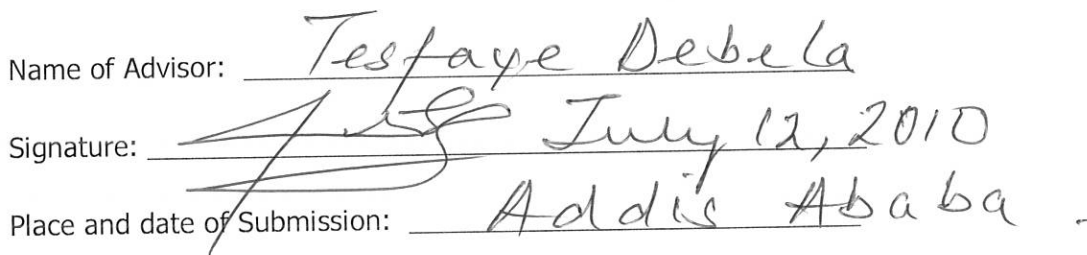 Name of Advisor: Tesfaye Debela
Signature: July 12, 2010
Place and date of Submission: Addis Ababa.